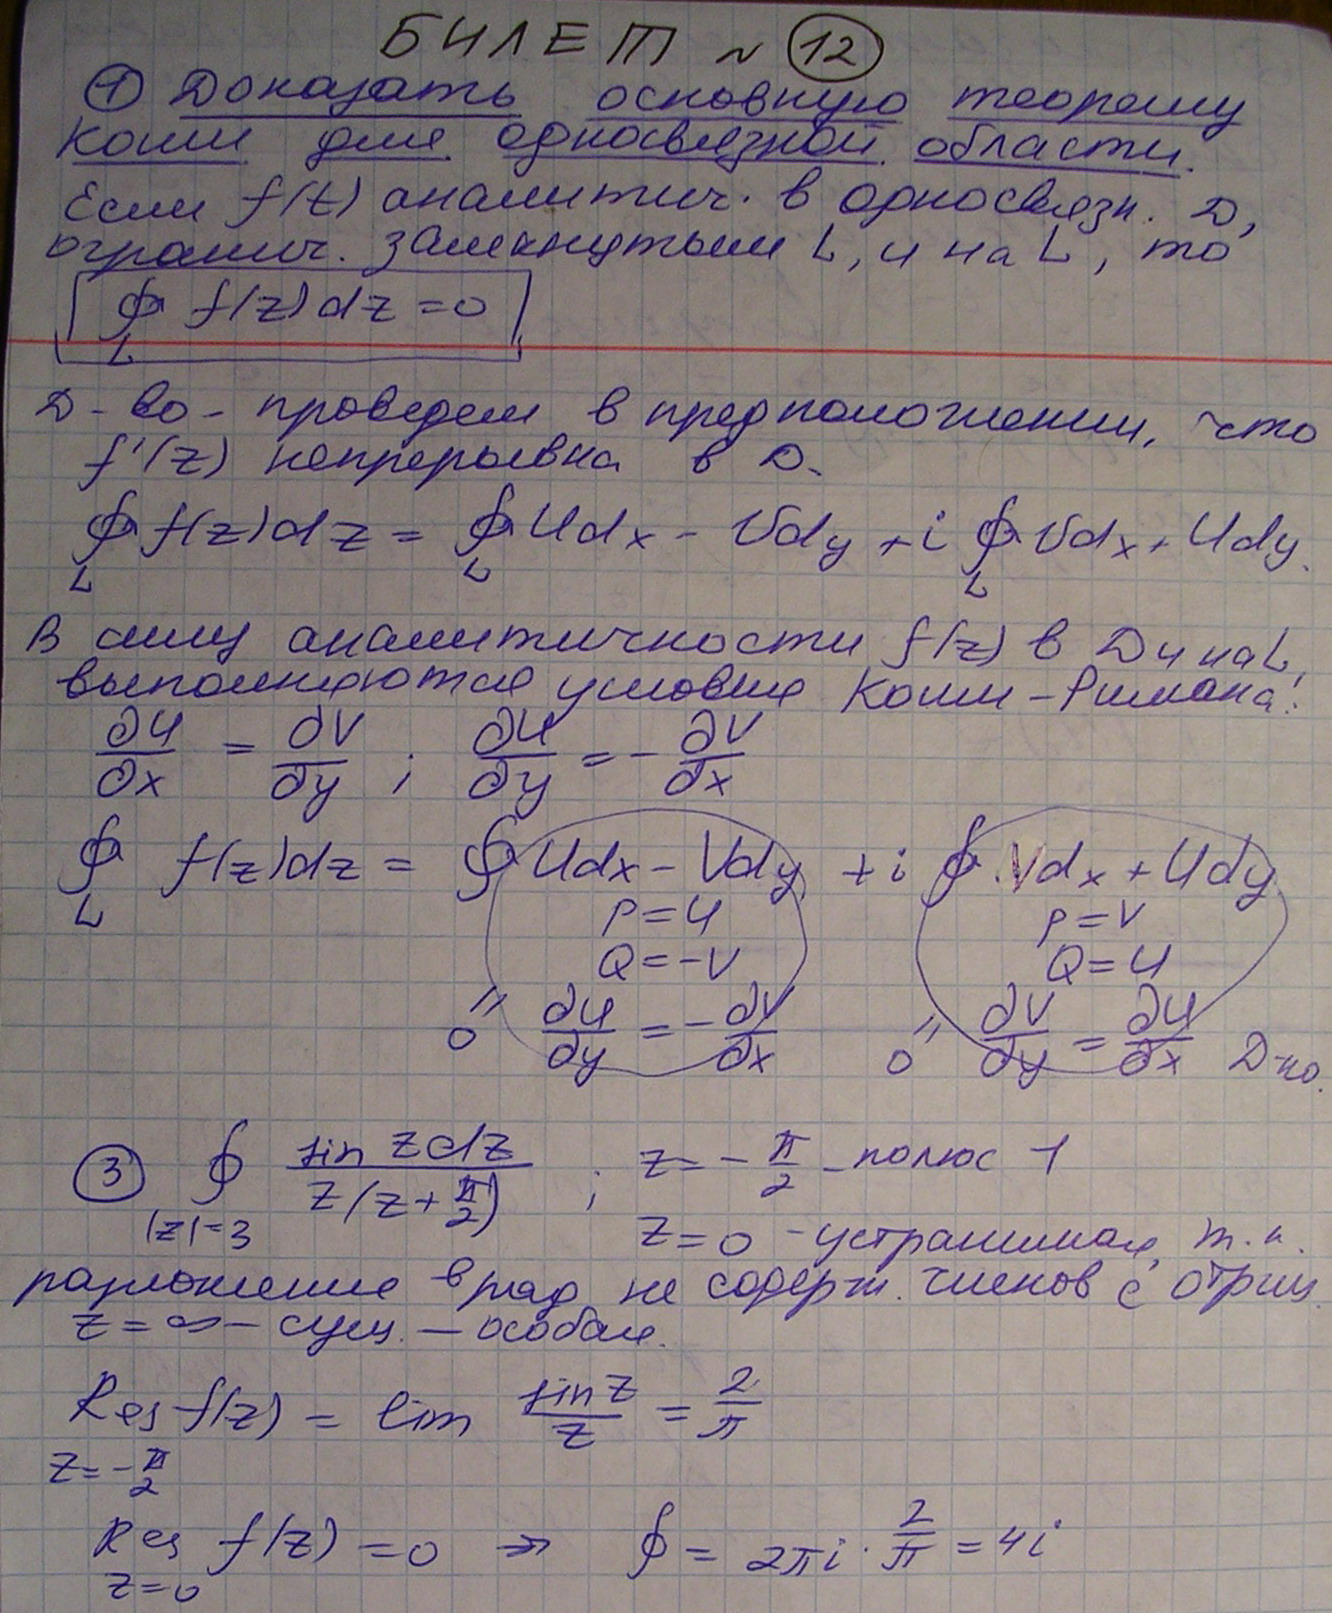 БИЛЕТ № 12
① Доказать основную теорему
Коши для односвязной области.
Если f(z) аналитич. в односвязн. D,
огранич. замкнутым L, и на L, то
∮_L f(z)dz = 0
Д-во - проведем в предположении, что
f'(z) непрерывна в D.
∮_L f(z)dz = ∮_L Udx - Vdy + i ∮_L Vdx + Udy.
В силу аналитичности f(z) в D и на L,
выполняются условия Коши-Римана:
∂U/∂x = ∂V/∂y ; ∂U/∂y = -∂V/∂x
∮_L f(z)dz = ∮ Udx - Vdy + i ∮ Vdx + Udy
P = U P = V
Q = -V Q = U
0 " ∂U/∂y = -∂V/∂x 0 " ∂V/∂y = ∂U/∂x Д-но.
③ ∮_{|z|=3} sin z dz / z(z + π/2) ; z = -π/2 - полюс 1
z = 0 - устранимая, т.к.
разложение в ряд не содерж. членов с отриц.
z = ∞ - сущ. - особая.
Res_{z = -π/2} f(z) = lim sin z / z = 2/π
Res_{z=0} f(z) = 0 ⇒ ∮ = 2πi · 2/π = 4i